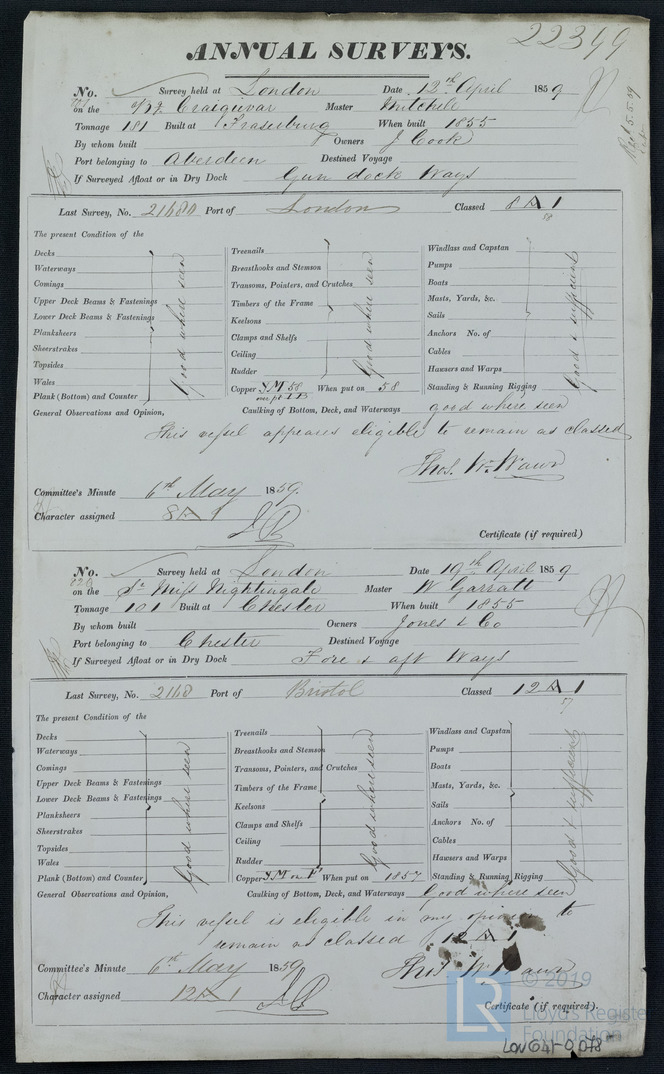 22349
ANNUAL SURVEYS.
No. Survey held at London Date 12th April 1859
on the Craiguvar Master Mitchell
Tonnage 181 Built at Fraserburg When built 1855
By whom built Owners J Cook
Port belonging to Aberdeen Destined Voyage
If Surveyed Afloat or in Dry Dock Gun dock Ways
Last Survey, No. 21680 Port of London Classed 8 A 1
58
The present Condition of the
Decks
Waterways
Comings
Upper Deck Beams & Fastenings
Lower Deck Beams & Fastenings
Planksheers
Sheerstrakes
Topsides
Wales
Plank (Bottom) and Counter
Good where seen
Treenails
Breasthooks and Stemson
Transoms, Pointers, and Crutches
Timbers of the Frame
Keelsons
Clamps and Shelfs
Ceiling
Rudder
Good where seen
Copper YM 58 When put on 58
Windlass and Capstan
Pumps
Boats
Masts, Yards, &c.
Sails
Anchors No. of
Cables
Hawsers and Warps
Standing & Running Rigging
Good & sufficient
General Observations and Opinion, Caulking of Bottom, Deck, and Waterways good where seen
This vessel appears eligible to remain as classed
Thos. Wm. Wawn
Committee's Minute 6th May 1859.
Character assigned 8 A 1
Certificate (if required)
No. Survey held at London Date 19th April 1859
on the Sr Miss Nightingale Master W Garratt
Tonnage 101 Built at Chester When built 1855
By whom built Owners Jones & Co
Port belonging to Chester Destined Voyage
If Surveyed Afloat or in Dry Dock Fore & aft Ways
Last Survey, No. 2168 Port of Bristol Classed 12 A 1
57
The present Condition of the
Decks
Waterways
Comings
Upper Deck Beams & Fastenings
Lower Deck Beams & Fastenings
Planksheers
Sheerstrakes
Topsides
Wales
Plank (Bottom) and Counter
Good where seen
Treenails
Breasthooks and Stemson
Transoms, Pointers, and Crutches
Timbers of the Frame
Keelsons
Clamps and Shelfs
Ceiling
Rudder
Good where seen
Copper YM on F When put on 1857
Windlass and Capstan
Pumps
Boats
Masts, Yards, &c.
Sails
Anchors No. of
Cables
Hawsers and Warps
Standing & Running Rigging
Good & sufficient
General Observations and Opinion, Caulking of Bottom, Deck, and Waterways Good where seen
This vessel is eligible in my opinion to
remain as classed 12 A 1
Committee's Minute 6th May 1859 Thos. Wm. Wawn
Character assigned 12 A 1
Certificate (if required).
© 2019
LR
Lloyd's Register
Foundation
LON641-0078